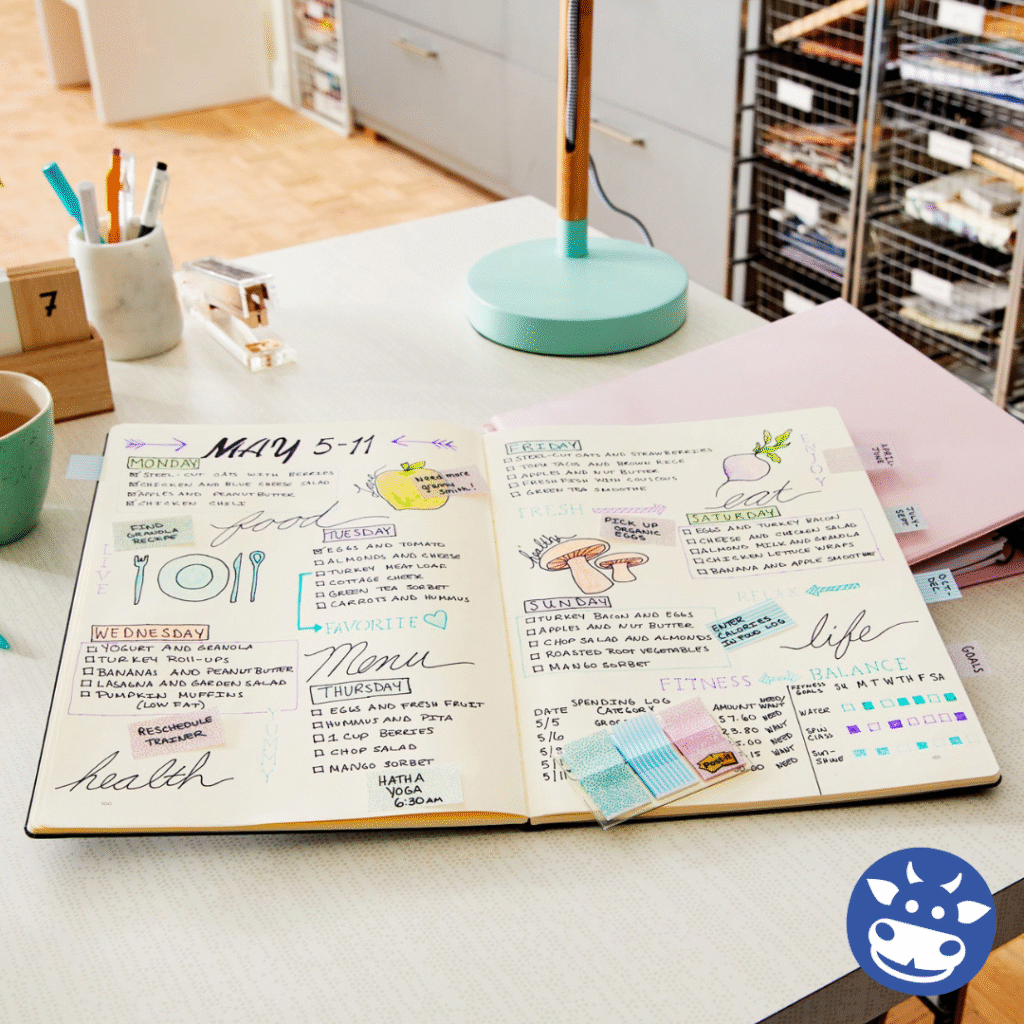 7
MAY 5-11
MONDAY
STEEL-CUT OATS WITH BERRIES
CHICKEN AND BLUE CHEESE SALAD
APPLES AND PEANUT BUTTER
CHICKEN CHILI
love
Need more granny smith!
FIND
GRANOLA
RECIPE
food
LIVE
TUESDAY
EGGS AND TOMATO
ALMONDS AND CHEESE
TURKEY MEAT LOAF
COTTAGE CHEESE
GREEN TEA SORBET
CARROTS AND HUMMUS
FAVORITE
WEDNESDAY
YOGURT AND GRANOLA
TURKEY ROLL-UPS
BANANAS AND PEANUT BUTTER
LASAGNA AND GARDEN SALAD
PUMPKIN MUFFINS
(LOW FAT)
RESCHEDULE
TRAINER
health
YUMMY
Menu
THURSDAY
EGGS AND FRESH FRUIT
HUMMUS AND PITA
1 CUP BERRIES
CHOP SALAD
MANGO SORBET
HATHA
YOGA
6:30 AM
FRIDAY
STEEL-CUT OATS AND STRAWBERRIES
TOFU TACOS AND BROWN RICE
APPLES AND NUT BUTTER
FRESH FISH WITH COUSCOUS
GREEN TEA SMOOTHIE
FRESH
eat
ENJOY
PICK UP
ORGANIC
EGGS
healthy
SATURDAY
EGGS AND TURKEY BACON
CHEESE AND CHICKEN SALAD
ALMOND MILK AND GRANOLA
CHICKEN LETTUCE WRAPS
BANANA AND APPLE SMOOTHIE
RELAX
SUNDAY
TURKEY BACON AND EGGS
APPLES AND NUT BUTTER
CHOP SALAD AND ALMONDS
ROASTED ROOT VEGETABLES
MANGO SORBET
ENTER
CALORIES
IN FOOD LOG
life
FITNESS BALANCE
SPENDING LOG
DATE CATEGORY AMOUNT NEED/WANT
5/5 57.60 NEED
5/6 WANT
NEED
WANT
5/11 NEED
Post-it
FITNESS GOALS SU M T W TH F SA
WATER
SPIN
CLASS
SUN-
SHINE
APRIL
JUNE
JULY
SEPT
OCT
DEC
GOALS